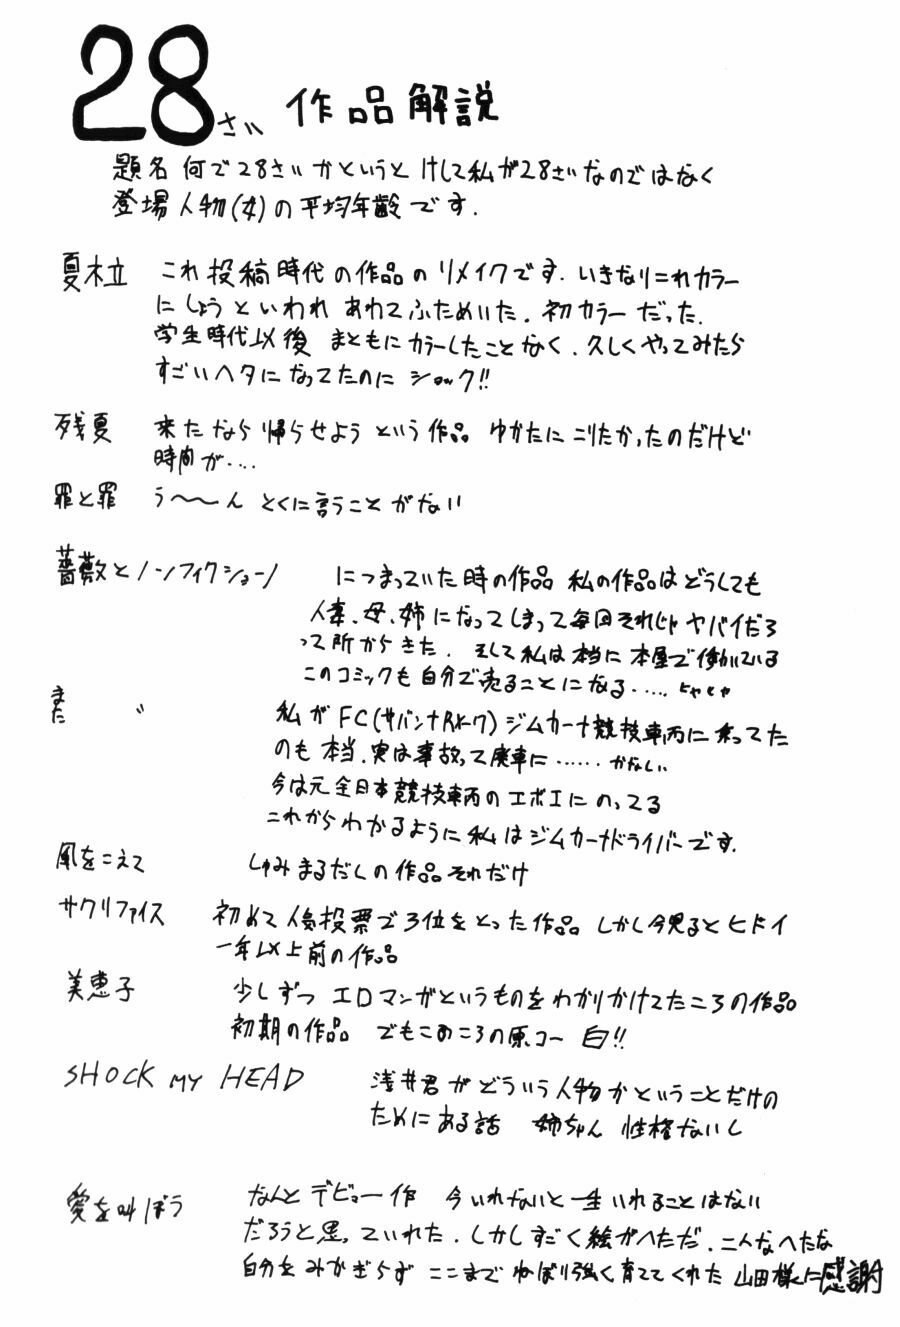 28さい 作品解説
題名 何で28さいかというと けして私が28さいなのではなく
登場人物(女)の平均年齢です.
夏木立 これ投稿時代の作品のリメイクです. いきなりこれカラー
にしようといわれ あわてふためいた. 初カラーだった.
学生時代以後 まともにカラーしたことなく. 久しくやってみたら
すごいヘタになってたのに ショック!!
残夏 来たなら帰らせようという作品 ゆかたにこりたかったのだけど
時間が....
罪と罪 う〜〜ん とくに言うことがない
薔薇とノンフィクション につまっていた時の作品 私の作品はどうしても
人妻、母、姉になってしまって毎回それじゃヤバイだろ
って所からきた. そして私は本当に本屋で働いている
このコミックも自分で売ることになる.....
また 〃 私がFC(サバンナRX-7)ジムカーナ競技車両に乗ってた
のも本当. 実は事故って廃車に...... かなしい
今は元全日本競技車両のエボIにのってる
これからわかるように私はジムカーナドライバーです.
風をこえて しゅみまるだしの作品それだけ
サクリファイス 初めて人気投票で3位をとった作品 しかし今見るとヒドイ
一年以上前の作品
美恵子 少しずつ エロマンガというものをわかりかけてたころの作品
初期の作品 でもこのころの原コー 白!!
SHOCK MY HEAD 浅井君がどういう人物かということだけの
ためにある話 姉ちゃん 性格ないし
愛を叫ぼう なんとデビュー作 今いれないと一生いれることはない
だろうと思っていれた. しかしすごく絵がへただ. こんなへたな
自分をみかぎらず ここまでねばり強く育ててくれた 山田様に感謝